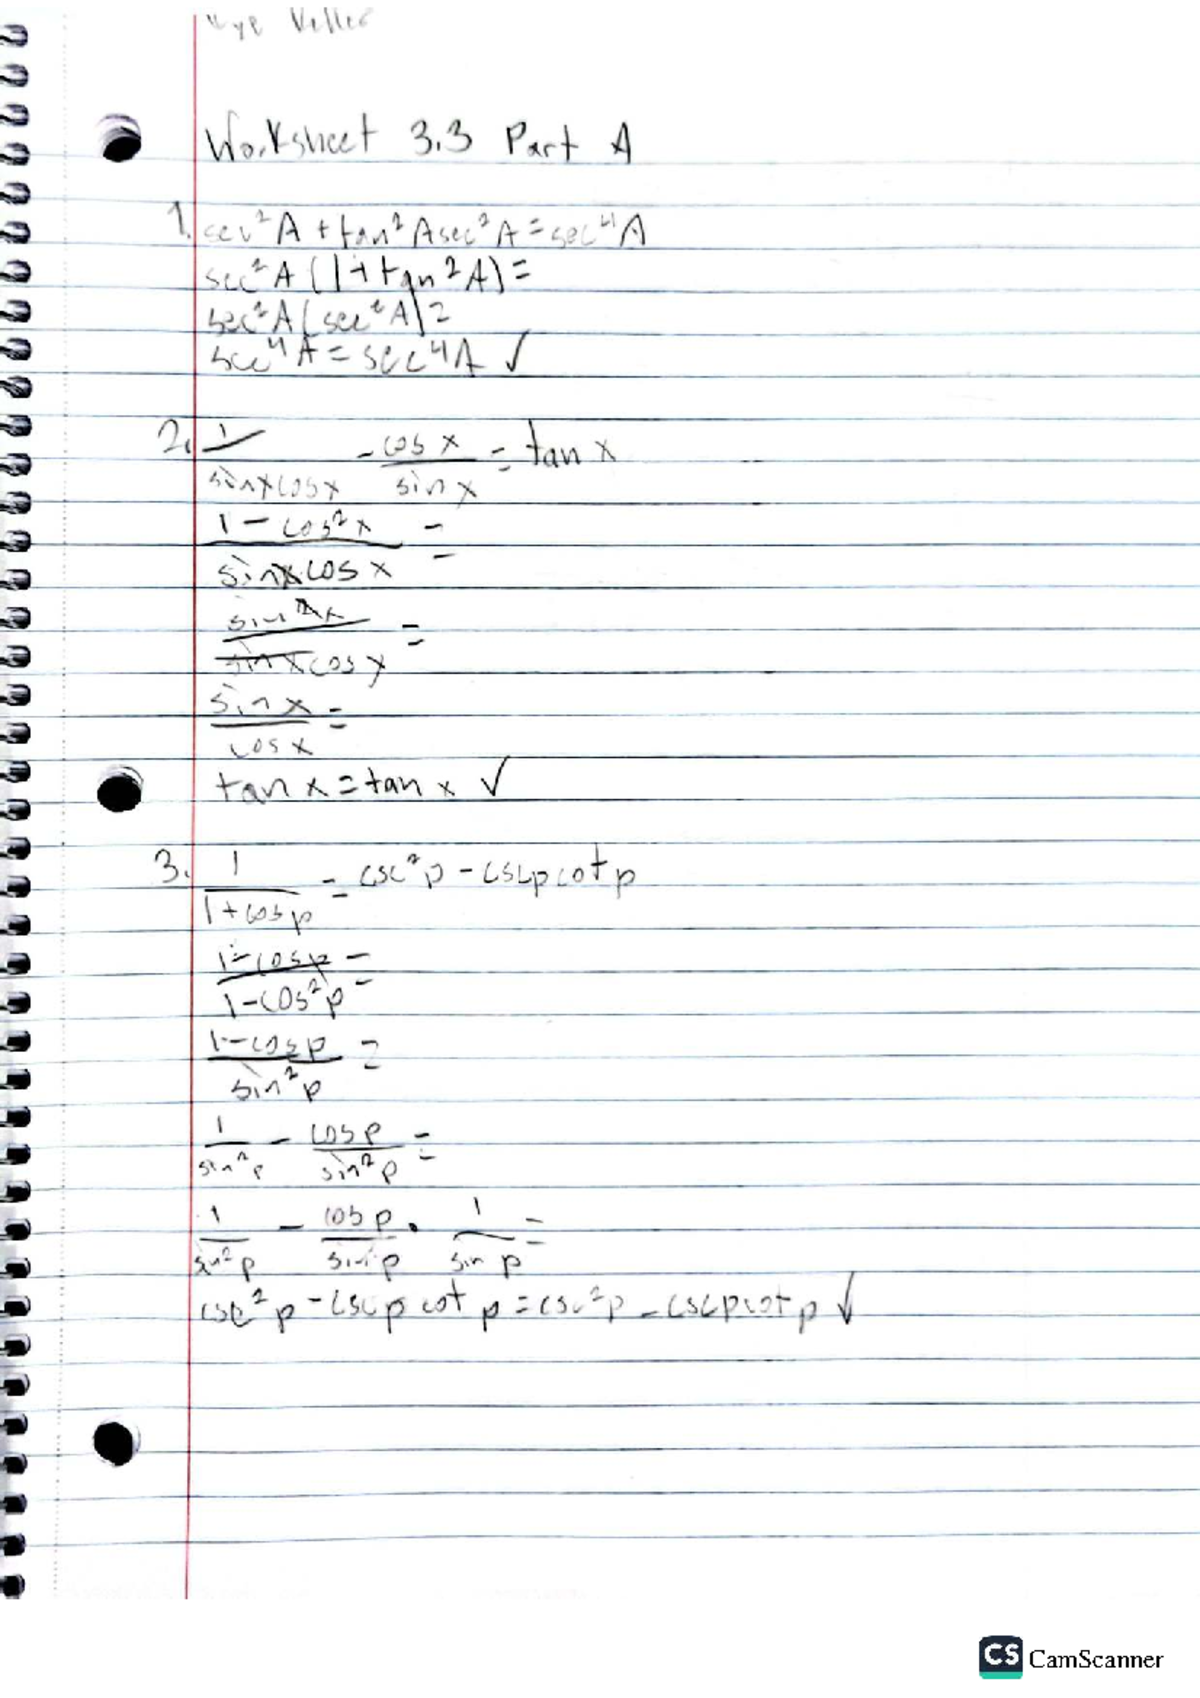 Worksheet 3.3 Part A
1. sec²A + tan²Asec²A = sec⁴A
sec²A(1+tan²A) =
sec²A(sec²A) =
sec⁴A = sec⁴A ✓
2. 1/(sinxcosx) - cos x/sin x = tan x
(1 - cos²x)/(sinx cos x) =
sin²x/(sin x cos x) =
sin x/cos x =
tan x = tan x ✓
3. 1/(1+cosp) = csc²p - cscpcotp
(1-cosp)/(1-cos²p) =
(1-cosp)/sin²p =
1/sin²p - cosp/sin²p =
1/sin²p - cosp/sinp · 1/sin p =
csc²p - cscpcotp = csc²p - cscpcotp ✓
CS CamScanner